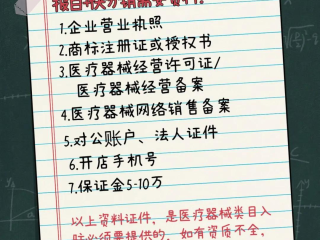 1.企业营业执照
2.商标注册证或授权书
3.医疗器械经营许可证/
医疗器械经营备案
4.医疗器械网络销售备案
5.对公账户、法人证件
6.开店手机号
7.保证金5-10万
以上资料证件，是医疗器械类目入
必须要提供的，如有资质不全，